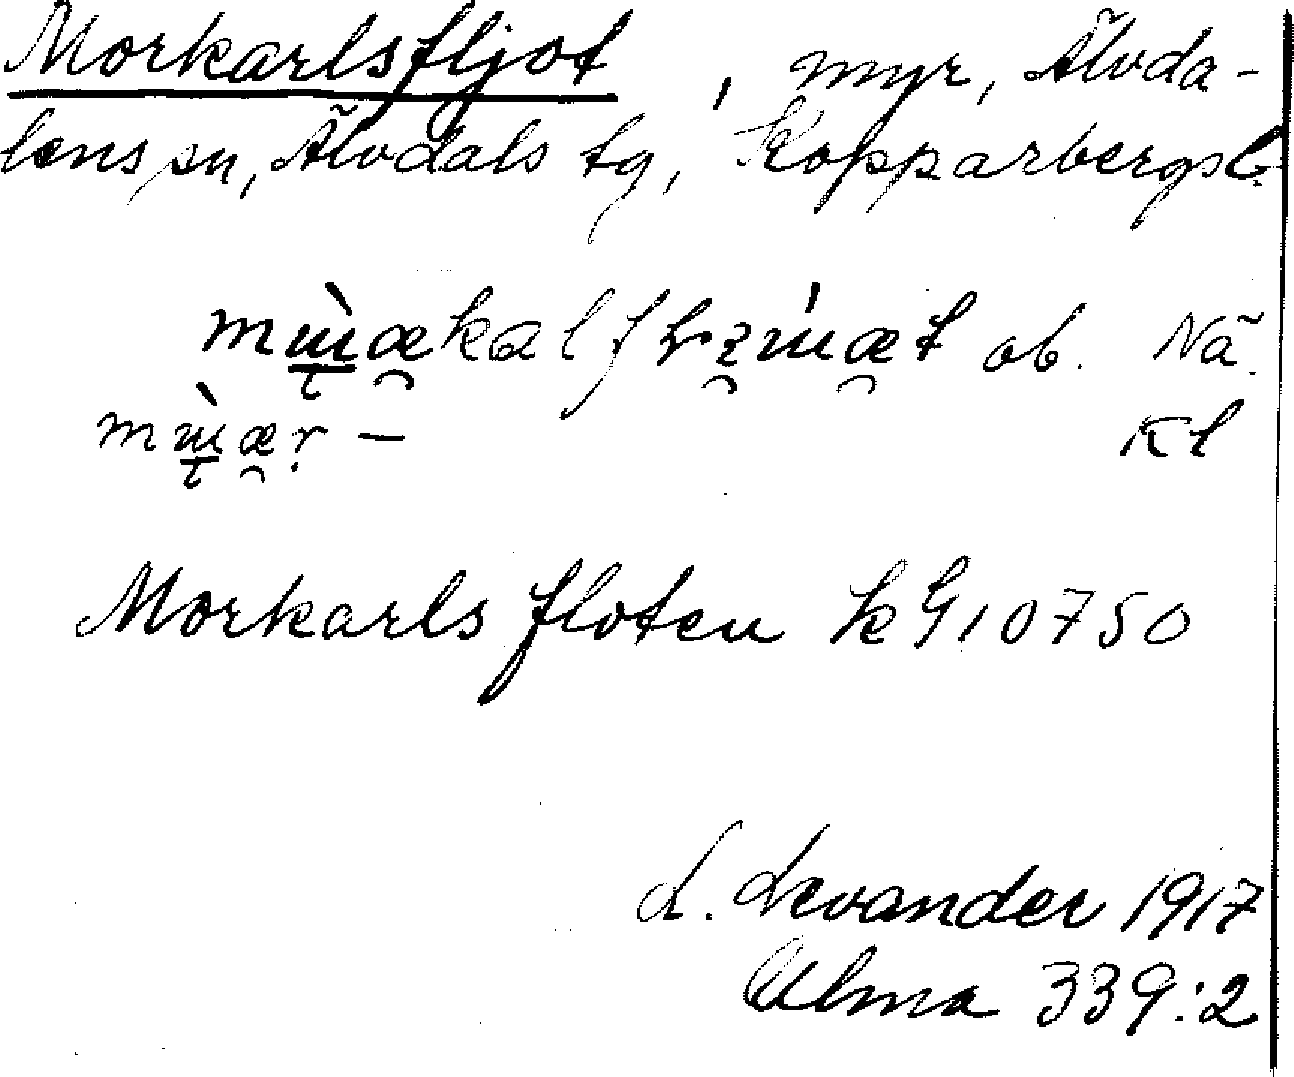 Morkarlsfljot, myr, Älvda-
lens sn, Älvdals tg, Kopparbergs l.
ob. Nä.
Kl
Morkarlsfloten kG 10750
L. Levander 1917
Ulma 339:2